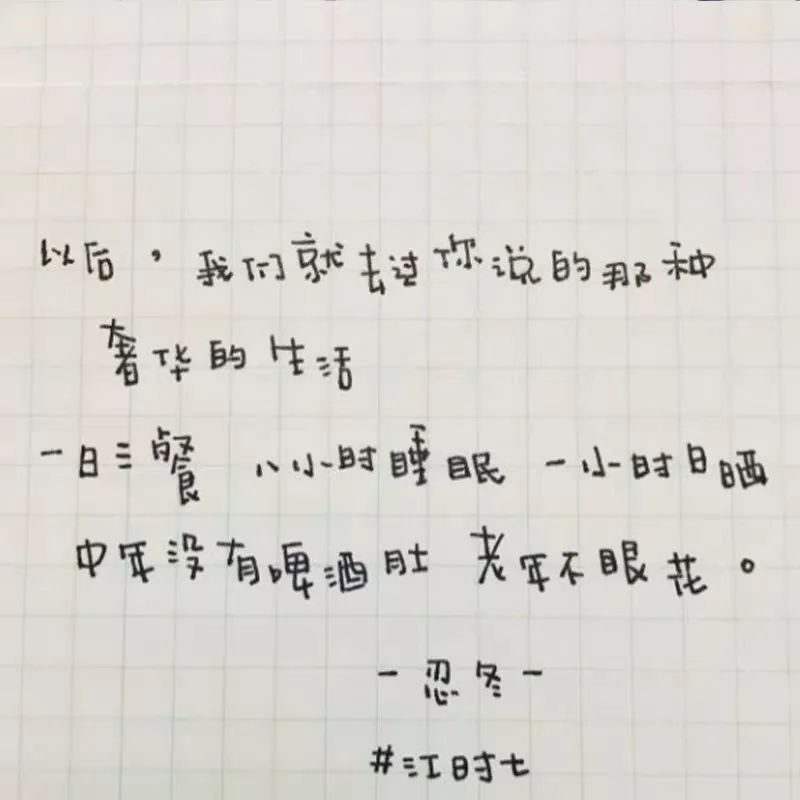 以后，我们就去过你说的那种
奢华的生活
一日三餐 八小时睡眠 一小时日晒
中年没有啤酒肚 老年不眼花。
-忍冬-
#江时七